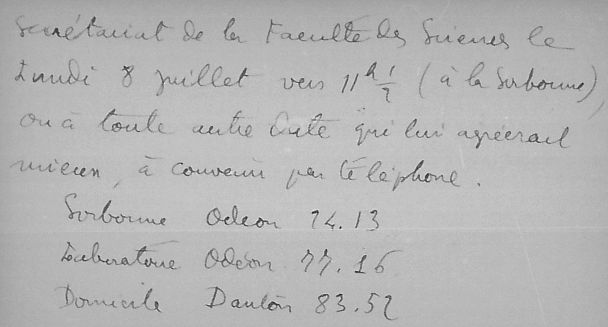 Secrétariat de la Faculté des Sciences le
Lundi 8 juillet vers 11 h 1/2 (à la Sorbonne),
ou à toute autre date qui lui agréerait
mieux, à convenir par téléphone.
Sorbonne Odéon 24.13
Laboratoire Odéon 77.16
Domicile Danton 83.52